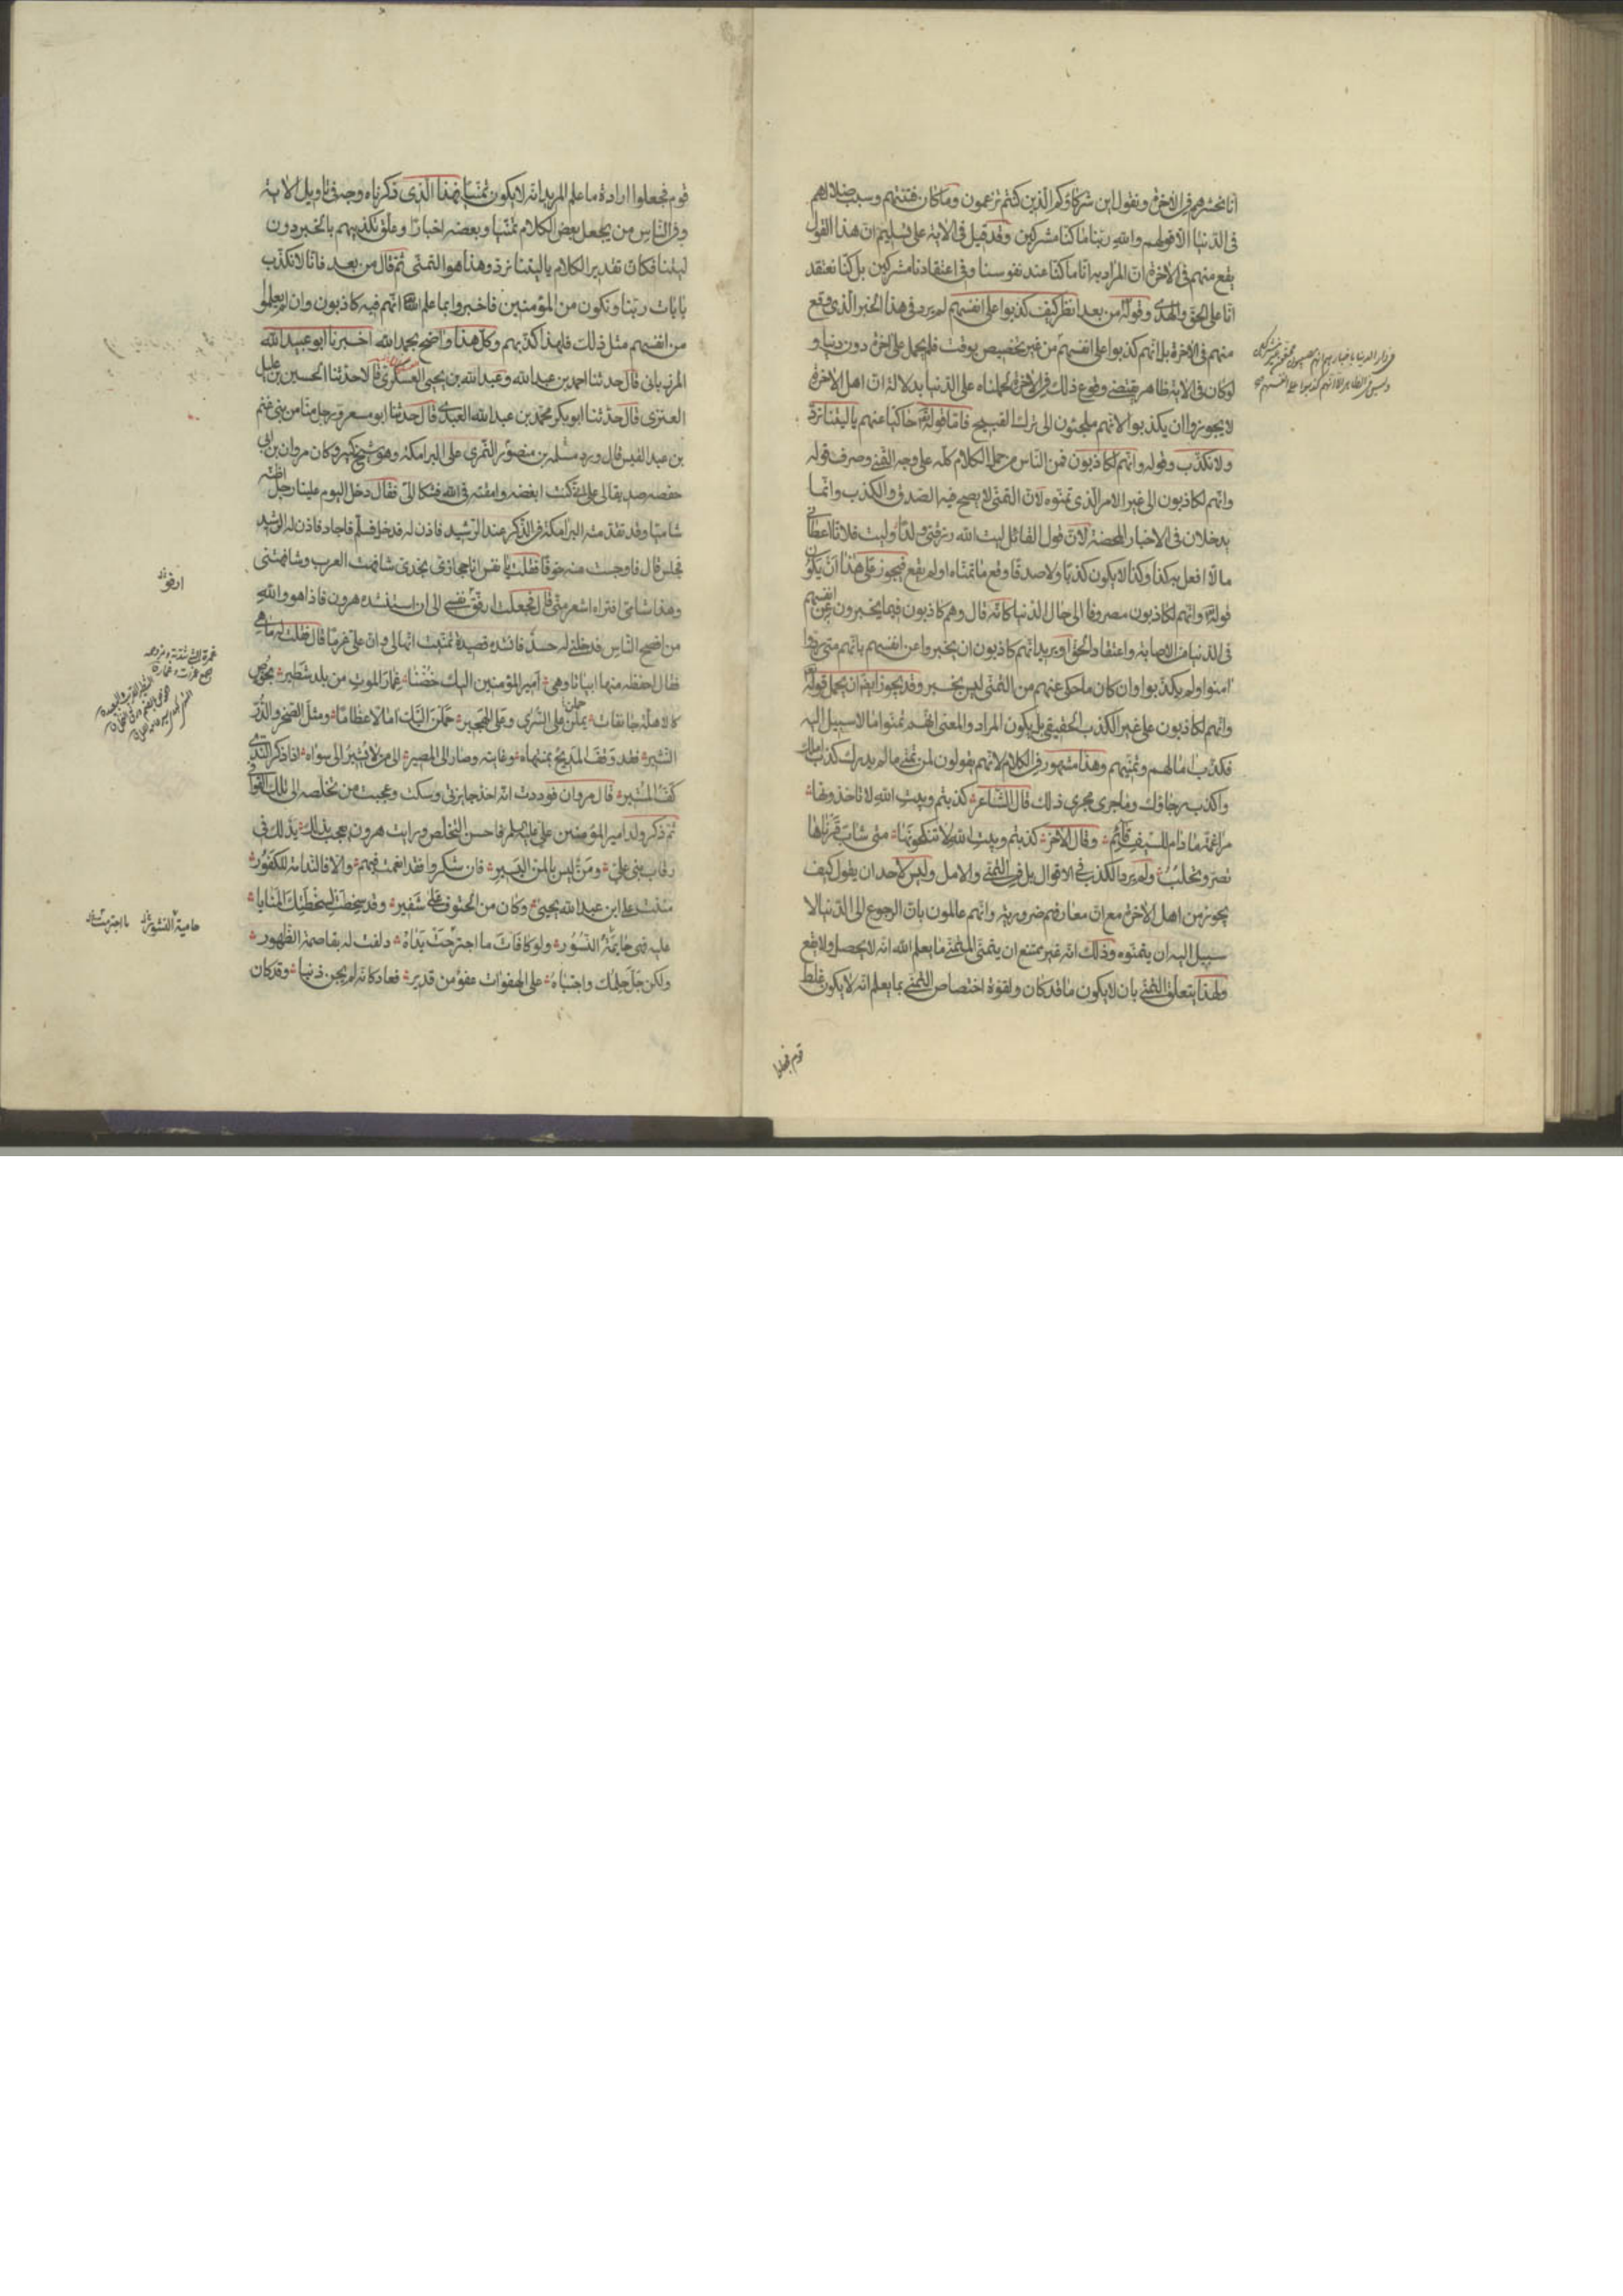 انا نحشرهم في الآخرة ونقول اين شركاؤكم الذين كنتم تزعمون وما كان فتنتهم وسبب ضلالهم
في الدنيا الا قولهم والله ربنا ما كنا مشركين وقد قيل في الآية على تسليم ان هذا القول
يقع منهم في الآخرة ان المراد به انا ما كنا عند نفوسنا وفي اعتقادنا مشركين بل كنا نعتقد
انا على الحق والهدى وقوله من بعد انظر كيف كذبوا على انفسهم لم يرد في هذا الخبر الذي وقع
منهم في الآخرة بل انهم كذبوا على انفسهم من غير تخصيص بوقت فلم يحمل على آخرة دون دنيا و
لو كان في الآية ظاهر يقتضي وقوع ذلك في الآخرة لحملناه على الدنيا بدلالة ان اهل الآخرة
لا يجوز ان يكذبوا لانهم ملجئون الى ترك القبيح فاما قوله حاكيا عنهم يا ليتنا نرد
ولا نكذب وقوله وانهم لكاذبون فمن الناس من حمل الكلام كله على وجه التمني وصرف قوله
وانهم لكاذبون الى غير الامر الذي تمنوه لان التمني لا يصح فيه الصدق والكذب وانما
يدخلان في الاخبار المحضة لان قول القائل ليت الله رزقني ولدا وليت فلانا اعطاني
مالا افعل به كذا وكذا لا يكون كذبا ولا صدقا وقع ما تمناه او لم يقع فيجوز على هذا ان يكون
قوله وانهم لكاذبون مصروفا الى حال الدنيا كانه قال وهم كاذبون فيما يخبرون عن انفسهم
في الدنيا من الاصابة واعتقاد الحق او يريد انهم كاذبون ان يخبروا عن انفسهم بانهم متى ردوا
آمنوا ولم يكذبوا وان كان ما حكي عنهم من التمني ليس بخبر وقد يجوز ايضا ان يحمل قوله
وانهم لكاذبون على غير الكذب الحقيقي بل يكون المراد والمعنى انهم تمنوا ما لا سبيل اليه
فكذب آمالهم وتمنيهم وهذا مشهور في الكلام لانهم يقولون لمن تمنى ما لم يدرك كذب املك
واكذب رجاؤك وما جرى مجرى ذلك قال الشاعر كذبتم وبيت الله لا تاخذونها
مراغمة ما دام للسيف قائم وقال الآخر كذبتم وبيت الله لا تنكحونها بني شاب قرناها
تصر وتحلب ولم يرد الكذب في الاقوال بل في التمني والامل وليس لاحد ان يقول كيف
يجوز من اهل الآخرة مع ان معارفهم ضرورية وانهم عالمون بان الرجوع الى الدنيا لا
سبيل اليه ان يتمنوه وذلك انه غير ممتنع ان يتمنى المتمني ما يعلم الله انه لا يحصل ولا يقع
ولهذا يتعلق التمني بان لا يكون ما قد كان ولقوة اختصاص التمني بما يعلم انه لا يكون غلط
قوم فجعلوا
قوم فجعلوا ارادة ما علم المريد انه لا يكون تمنيا فهذا الذي ذكرناه وجه في تاويل الآية
وفي الناس من يجعل بعض الكلام تمنيا وبعضه اخبارا وعلق تكذيبهم بالخبر دون
ليتنا فكان تقدير الكلام يا ليتنا نرد وهذا هو التمني ثم قال من بعد فانا لا نكذب
بآيات ربنا ونكون من المؤمنين فاخبروا بما علم الله انهم فيه كاذبون وان لم يعلموا
من انفسهم مثل ذلك فلهذا كذبهم وكل هذا واضح بحمد الله اخبرنا ابو عبيد الله
المرزباني قال حدثنا احمد بن عبد الله وعبد الله بن يحيى العسكري قالا حدثنا الحسين بن عليل
العنزي قال حدثنا ابو بكر محمد بن عبد الله العبدي قال حدثنا ابو مسعر رجل منا من بني غنم
بن عبد القيس قال ورد منصور بن سلمة النمري على البرامكة وهو شيخ كبير وكان مروان بن ابي
حفصة صديقا لي على اني كنت ابغضه وامقته في الله فشكا الي فقال دخل اليوم علينا رجل اظنه
شاميا وقد تقدمته البرامكة في الذكر عند الرشيد فاذن له فدخل فسلم فاجاد فاذن له الرشيد
فجلس قال فاوجست منه خوفا فقلت يا نفس انا حجازي نجدي شافهت العرب وشافهتني
وهذا شامي افتراه اشعر مني قال فجعلت ارفو نفسي الى ان استنشده هرون فاذا هو والله
من افصح الناس فدخلني له حسد فانشده قصيدة تمنيت انها لي وان علي غرما قال فقلت له ما هي
فقال احفظ منها ابياتا وهي امير المؤمنين اليك خضنا غمار الموت من بلد شطير بخوص
كالاهلة جانفات يملن على السرى وعلى الهجير حملن اليك آمالا عظاما ومثل الصخر والدر
النثير فقد وقف المديح بمنتهاه وغايته وصار الى المصير الى من لا تشير الى سواه اذا ذكر الندى
كف المشير قال مروان فوددت انه اخذ جايزتي وسكت وعجبت من تخلصه الى تلك القوافي
ثم ذكر ولد امير المؤمنين علي عليه السلم فاحسن التخلص ورايت هرون يعجب بذلك يد لك في
رقاب بني علي ومن ليس بالمن اليسير فان شكروا فقد انعمت فيهم والا فالندامة للكفور
مننت على ابن عبد الله يحيى وكان من الحتوف على شفير وقد سخطت لسخطتك المنايا
عليه فهي حائمة النسور ولو كافات ما اجترحت يداه دلفت له بقاصمة الظهور
ولكن جل حلمك واجتباه على الهفوات عفو من قدير فعاد كانه لم يجن ذنبا وقد كان
ارفو
حامية النشور
ما اجترمت